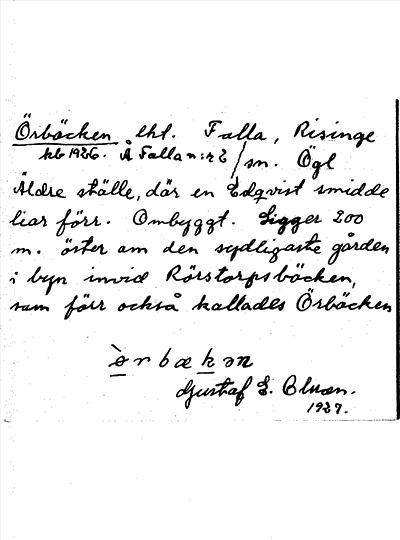 Örbäcken lht. Falla, Risinge
kb 1926. Å Falla n:r 2 / sn. Ögl
Äldre ställe, där en Edqvist smidde
liar förr. Ombyggt. Ligger 200
m. öster om den sydligaste gården
i byn invid Rörstorpsbäcken,
som förr också kallades Örbäcken
Gustaf E.
1927.